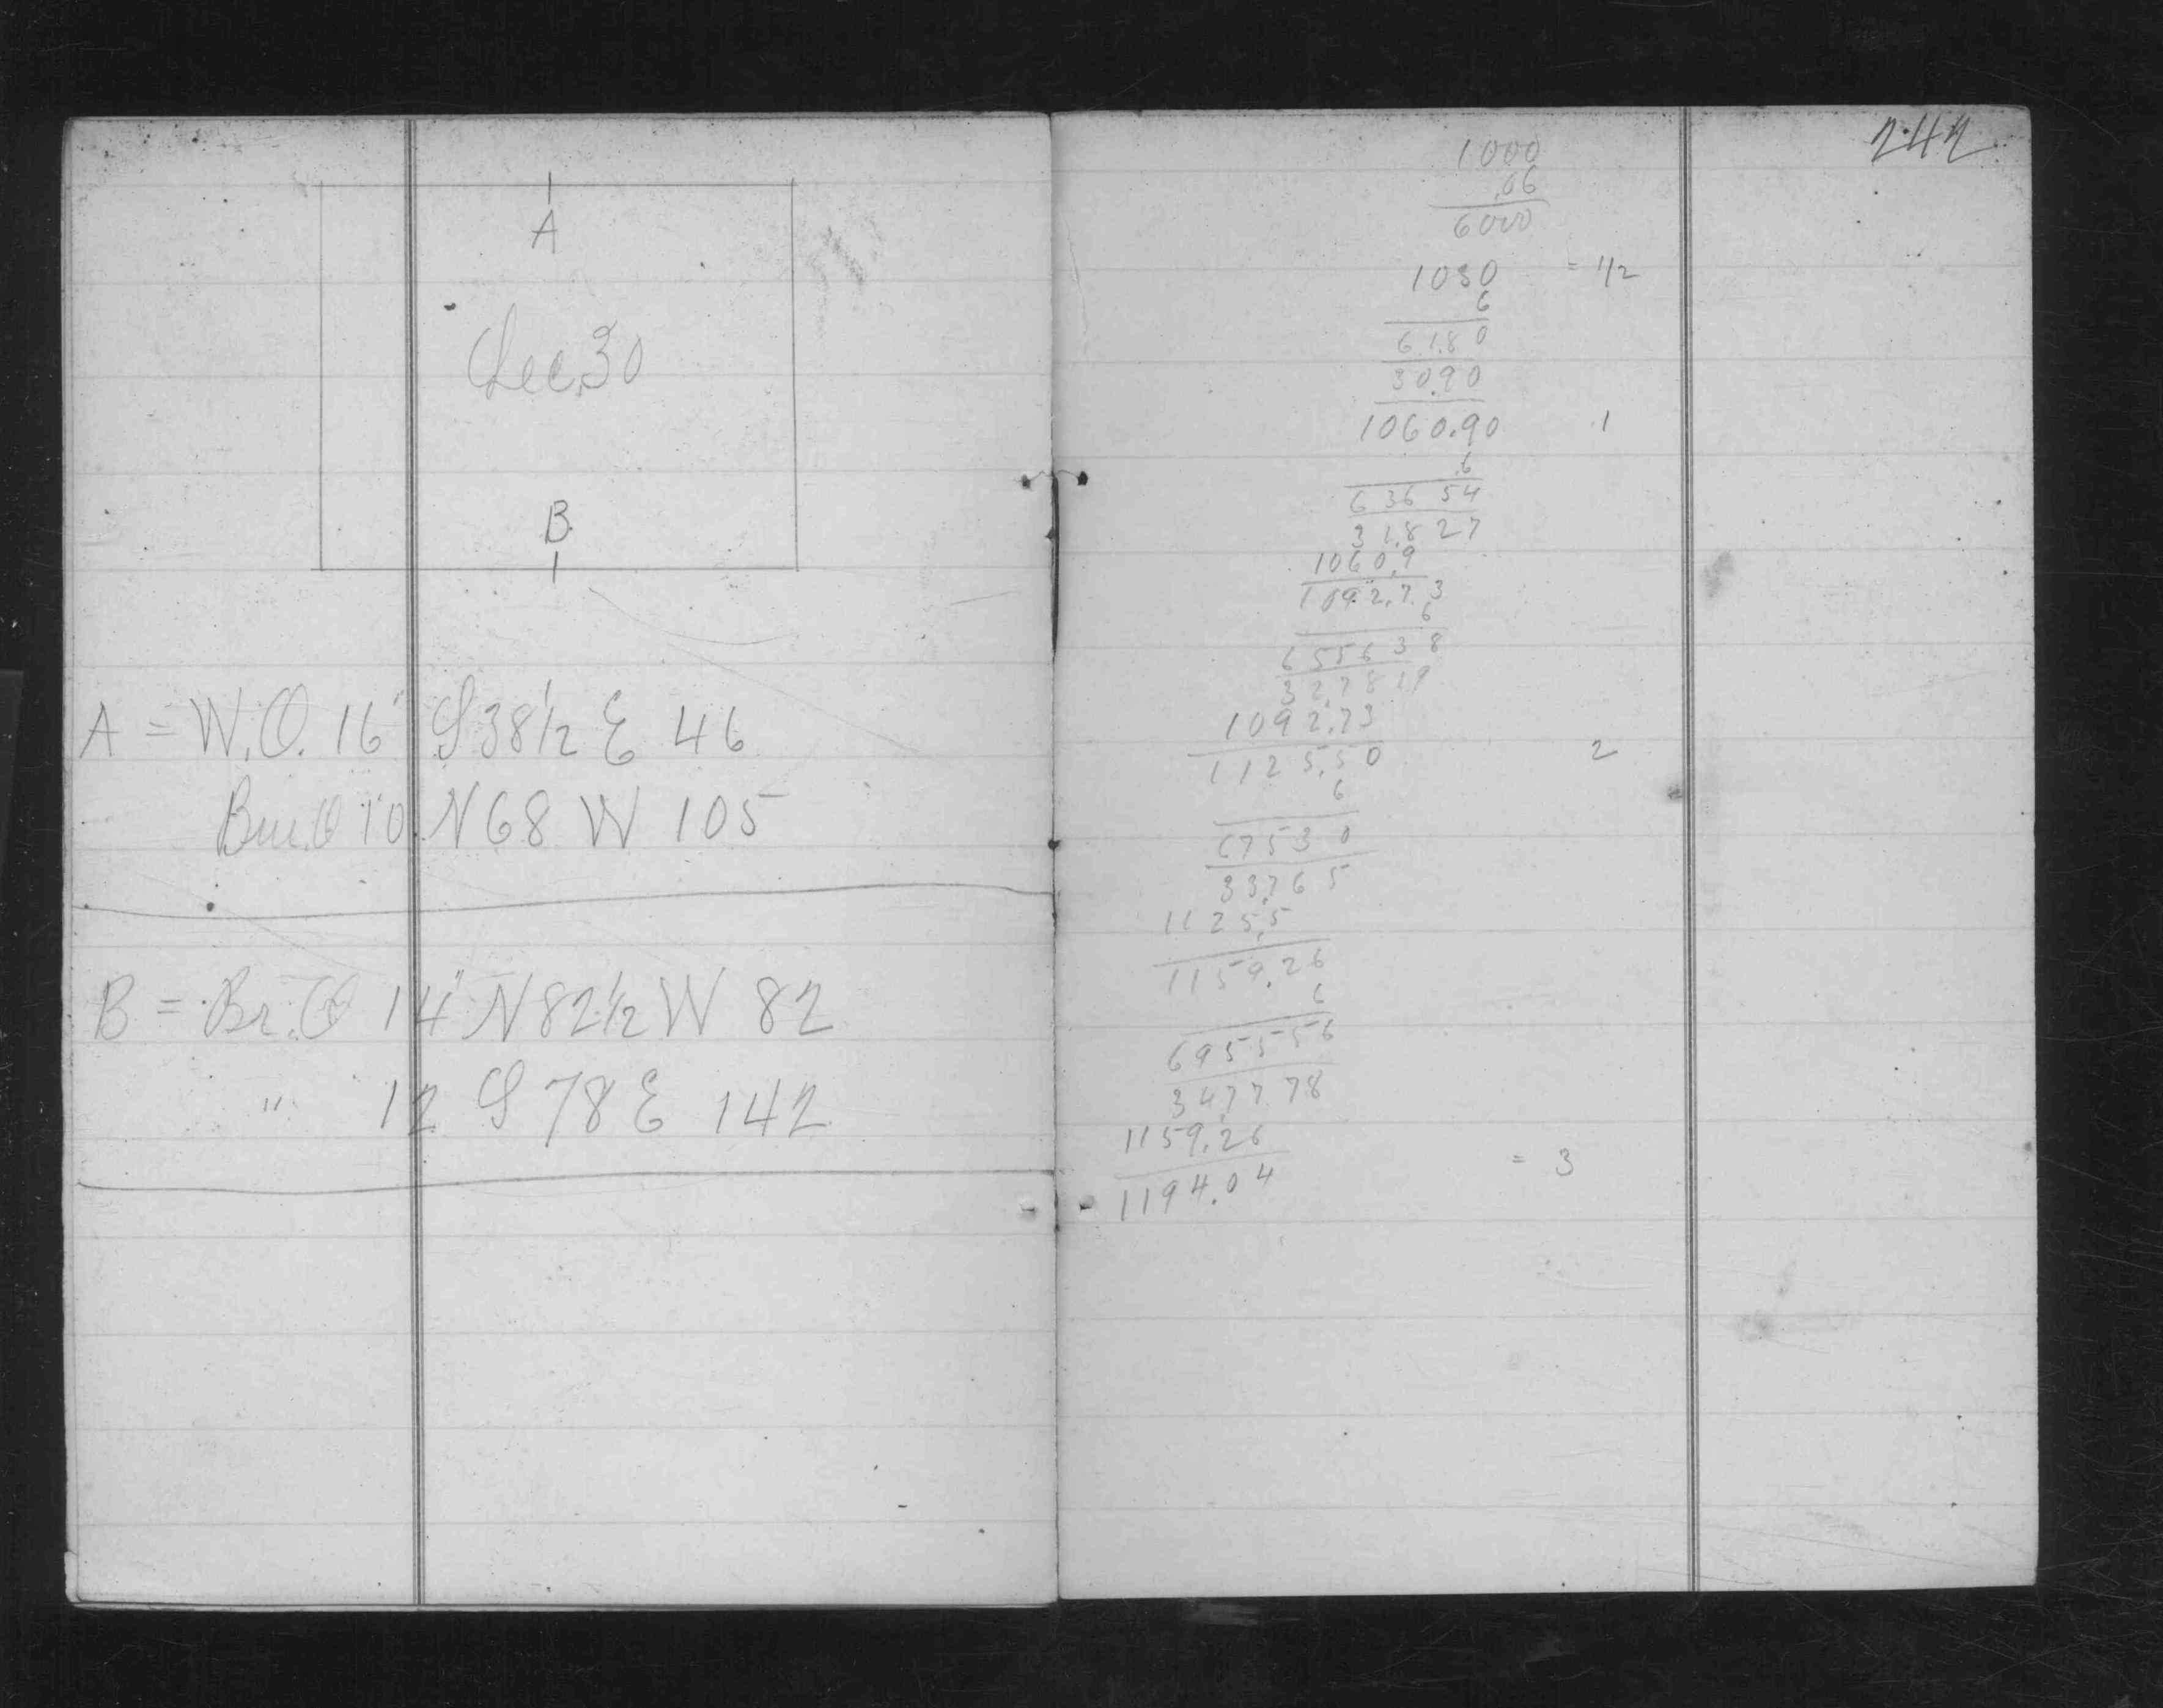 A
Sec. 30
B
A = W.O. 16" S 38 1/2 E 46
Bur. O 10 N 68 W 105
B = Br. O 14" N 82 1/2 W 82
" 12 S 78 E 142
242
1000
.06
6000
1030 = 1/2
6
61.80
30.90
1060.90 1
.6
636 54
31.827
1060.9
1092.73
6
655638
32.7819
1092.73
1125.50 2
6
67530
33.765
1125.5
1159.26
6
695556
34.7778
1159.26
1194.04 = 3